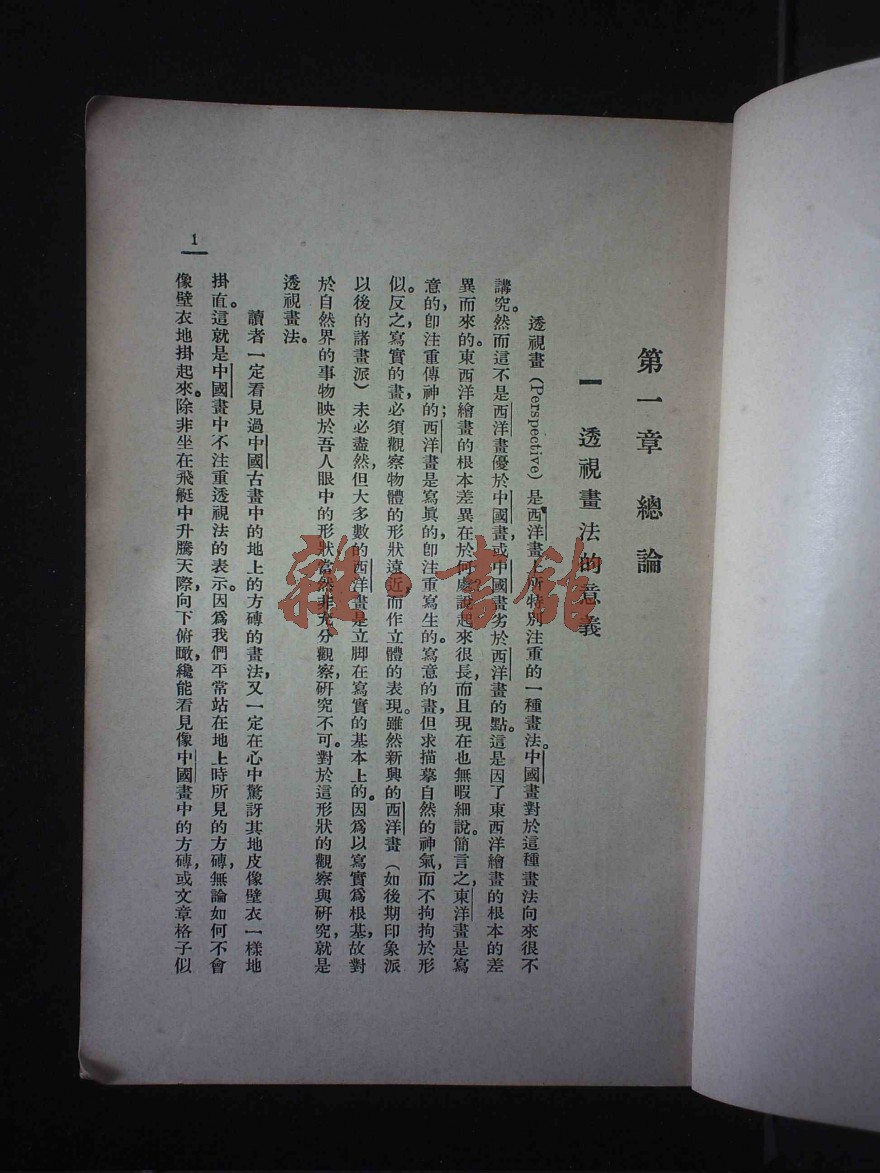 第一章　總論
一　透視畫法的意義
透視畫（Perspective）是西洋畫上所特別注重的一種畫法。中國畫對於這種畫法向來很不
講究。然而這不是西洋畫優於中國畫，或中國畫劣於西洋畫的點。這是因了東西洋繪畫的根本的差
異而來的。東西洋繪畫的根本差異在於何處？說起來很長，而且現在也無暇細說。簡言之，東洋畫是寫
意的，卽注重傳神的；西洋畫是寫眞的，卽注重寫生的。寫意的畫，但求描摹自然的神氣，而不拘拘於形
似。反之，寫實的畫，必須觀察物體的形狀遠近，而作立體的表現。雖然新興的西洋畫（如後期印象派
以後的諸畫派）未必盡然，但大多數的西洋畫是立脚在寫實的基本上的。因爲以寫實爲根基，故對
於自然界的事物映於吾人眼中的形狀，當然非充分觀察，研究不可。對於這形狀的觀察與研究，就是
透視畫法。
讀者一定看見過中國古畫中的地上的方磚的畫法，又一定在心中驚訝其地皮像壁衣一樣地
掛直。這就是中國畫中不注重透視法的表示。因爲我們平常站在地上時所見的方磚，無論如何不會
像壁衣地掛起來。除非坐在飛艇中升騰天際，向下俯瞰，纔能看見像中國畫中的方磚，或文章格子似
1
雜·書館